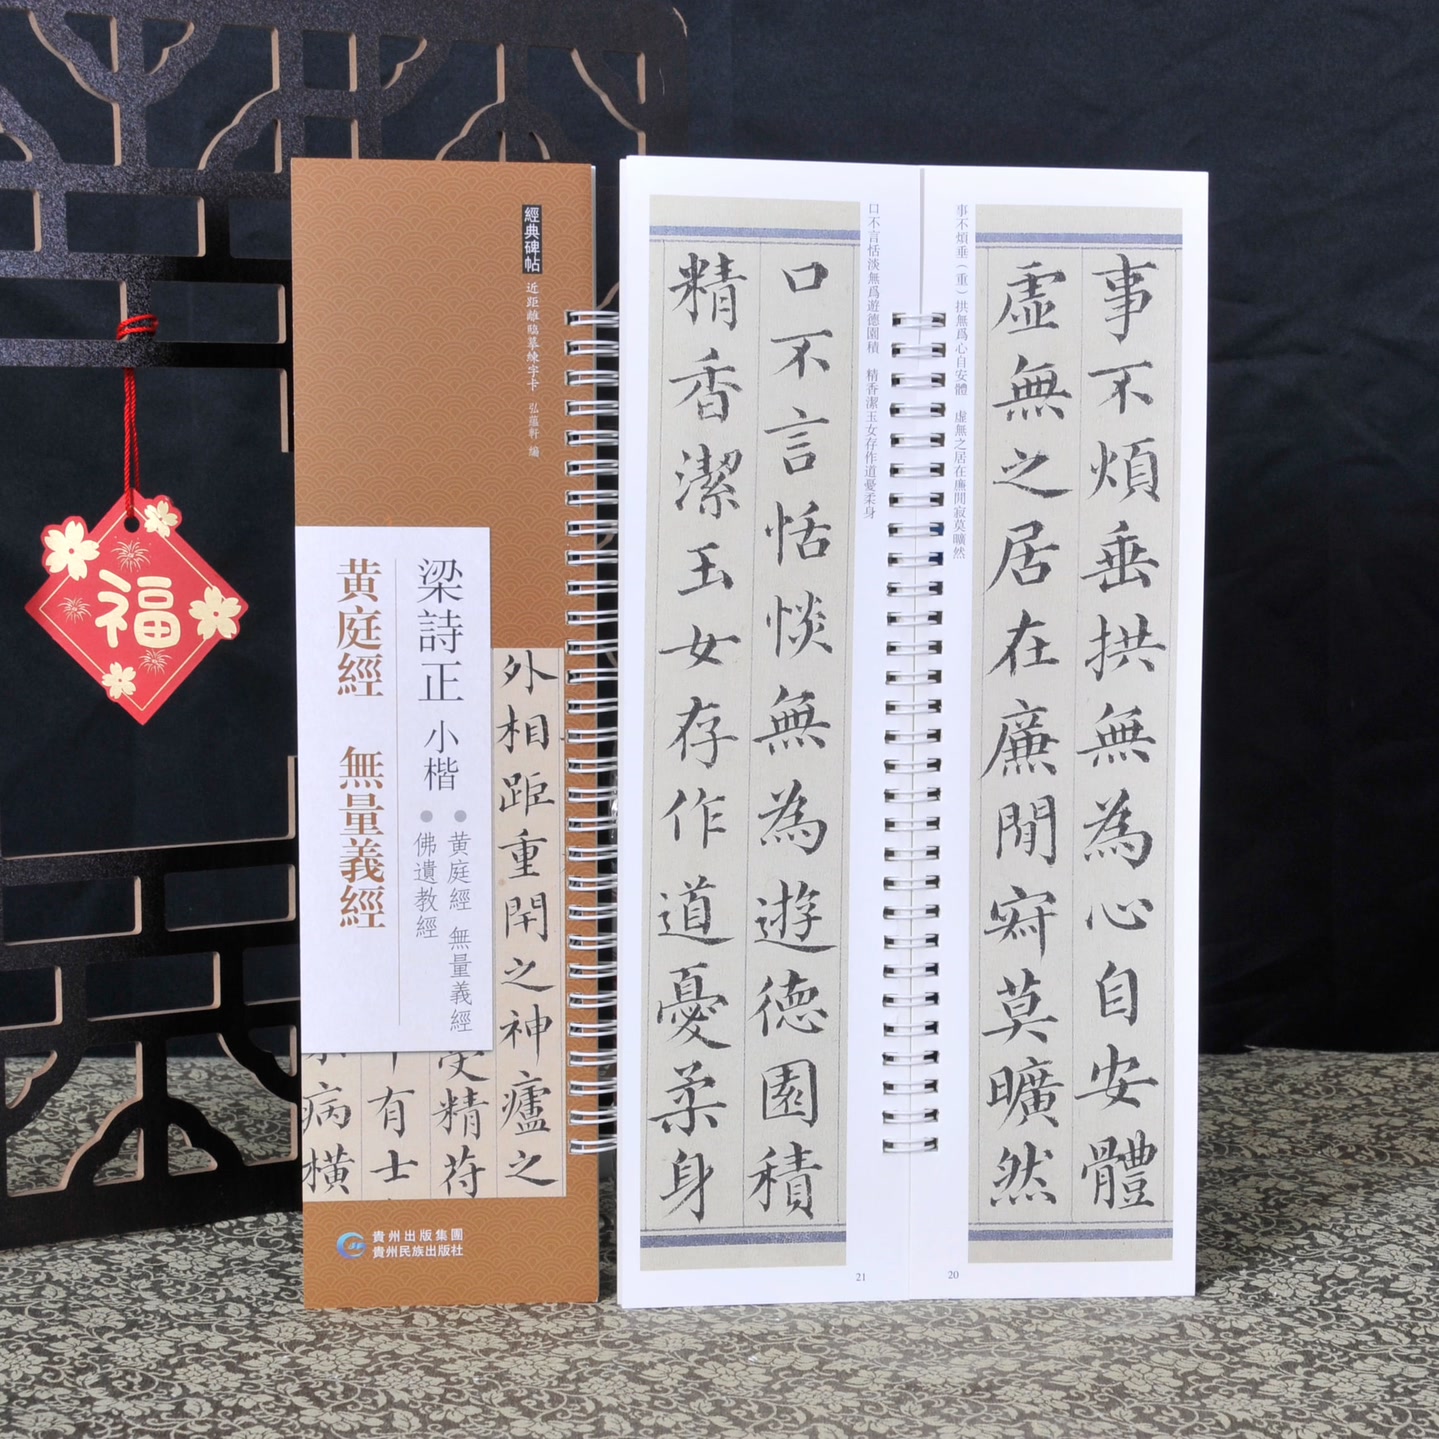 福
經典碑帖
近距離臨摹練字卡 弘蘊軒 編
梁詩正 小楷
黄庭經 無量義經
佛遺教經
黄庭經 無量義經
外相距重閇之神廬之
受精符
有士
病橫
貴州出版集團
貴州民族出版社
事不煩垂(重)拱無爲心自安體 虛無之居在廡閒寂莫曠然
事不煩垂拱無為心自安體
虛無之居在廡閒寂莫曠然
20
口不言恬淡無爲遊德園積 精香潔玉女存作道憂柔身
口不言恬惔無為遊德園積
精香潔玉女存作道憂柔身
21